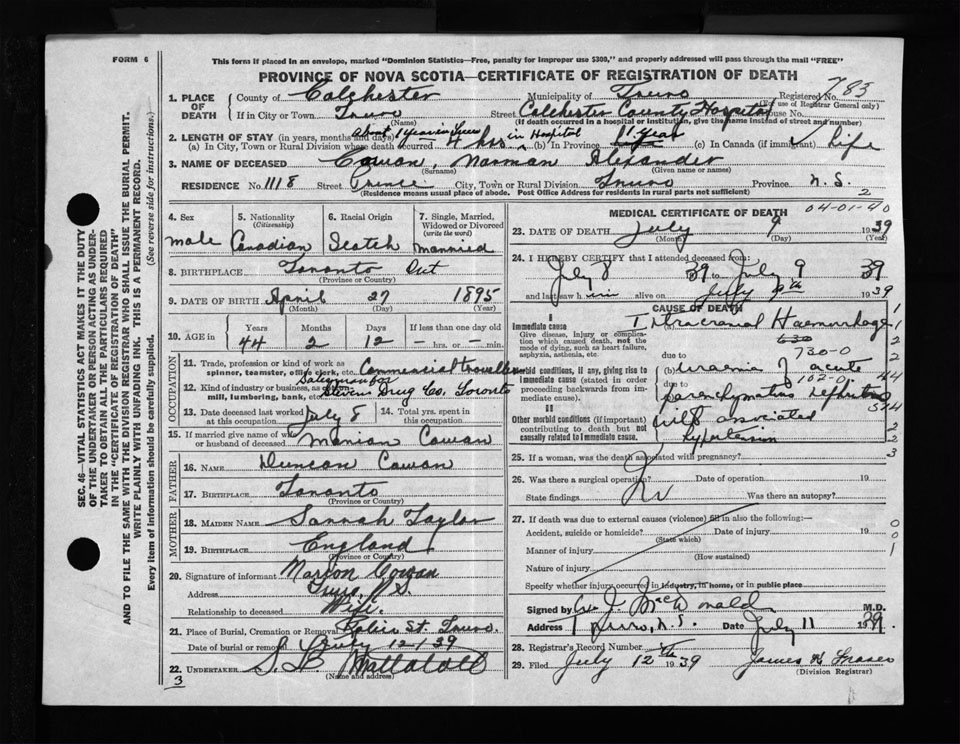 FORM 6
This form if placed in an envelope, marked "Dominion Statistics—Free, penalty for improper use $300," and properly addressed will pass through the mail "FREE"
PROVINCE OF NOVA SCOTIA—CERTIFICATE OF REGISTRATION OF DEATH
Registered No. 783
(For use of Registrar General only)
1. PLACE OF DEATH County of Colchester Municipality of Truro
If in City or Town Truro (Name) Street Colchester County Hospital House No.
(If death occurred in a hospital or institution, give the name instead of street and number)
2. LENGTH OF STAY (in years, months and days) About 1 year in Truro
(a) In City, Town or Rural Division where death occurred 4 hrs in Hospital (b) In Province 1 Year (c) In Canada (if immigrant) Life
3. NAME OF DECEASED Cowan, Norman Alexander
(Surname) (Given name or names)
RESIDENCE No. 1118 Street Prince City, Town or Rural Division Truro Province N.S.
(Residence means usual place of abode. Post Office Address for residents in rural parts not sufficient)
2
4. Sex male
5. Nationality (Citizenship) Canadian
6. Racial Origin Scotch
7. Single, Married, Widowed or Divorced (write the word) Married
8. BIRTHPLACE Toronto Ont
(Province or Country)
9. DATE OF BIRTH April 27 1895
(Month) (Day) (Year)
10. AGE in Years 44 Months 2 Days 12 If less than one day old — hrs. or — min.
OCCUPATION
11. Trade, profession or kind of work as spinner, teamster, office clerk, etc. Commercial traveller
12. Kind of industry or business, as cotton mill, lumbering, bank, etc. Salesman for Stevens Drug Co. Toronto
13. Date deceased last worked at this occupation July 8
14. Total yrs. spent in this occupation
15. If married give name of wife or husband of deceased Marian Cowan
FATHER
16. NAME Duncan Cowan
17. BIRTHPLACE Toronto
(Province or Country)
MOTHER
18. MAIDEN NAME Sarah Taylor
19. BIRTHPLACE England
(Province or Country)
20. Signature of informant Marion Cowan
Address Truro, N.S.
Relationship to deceased Wife.
21. Place of Burial, Cremation or Removal Robie St. Truro.
Date of burial or removal July 12/39
22. UNDERTAKER
(Name and address)
3
MEDICAL CERTIFICATE OF DEATH
04-01-40
23. DATE OF DEATH July 9 1939
(Month) (Day) (Year)
24. I HEREBY CERTIFY that I attended deceased from:
July 8 39 to July 9 39
and last saw him alive on July 9th 1939
CAUSE OF DEATH
I
Immediate cause
Give disease, injury or complication which caused death, not the mode of dying, such as heart failure, asphyxia, asthenia, etc.
Intracranial Haemorhage
630
due to 730-0
Morbid conditions, if any, giving rise to immediate cause (stated in order proceeding backwards from immediate cause).
(b) uraemia & acute
due to 102-0
parenchymatous nephritis
Other morbid conditions (if important) contributing to death but not causally related to immediate cause.
with associated
hypertension
25. If a woman, was the death associated with pregnancy?
26. Was there a surgical operation? No Date of operation 19
State findings Was there an autopsy?
27. If death was due to external causes (violence) fill in also the following:—
Accident, suicide or homicide? Date of injury 19
(State which)
Manner of injury
(How sustained)
Nature of injury
Specify whether injury occurred in industry, in home, or in public place
Signed by M.D.
Address Truro, N.S. Date July 11 1939.
28. Registrar's Record Number
29. Filed July 12th 1939 James H Fraser
(Division Registrar)
SEC. 46—VITAL STATISTICS ACT MAKES IT THE DUTY
OF THE UNDERTAKER OR PERSON ACTING AS UNDER-
TAKER TO OBTAIN ALL THE PARTICULARS REQUIRED
IN THE "CERTIFICATE OF REGISTRATION OF DEATH"
AND TO FILE THE SAME WITH THE DIVISION REGISTRAR WHO SHALL ISSUE THE BURIAL PERMIT.
WRITE PLAINLY WITH UNFADING INK. THIS IS A PERMANENT RECORD.
Every item of information should be carefully supplied. (See reverse side for instructions.)